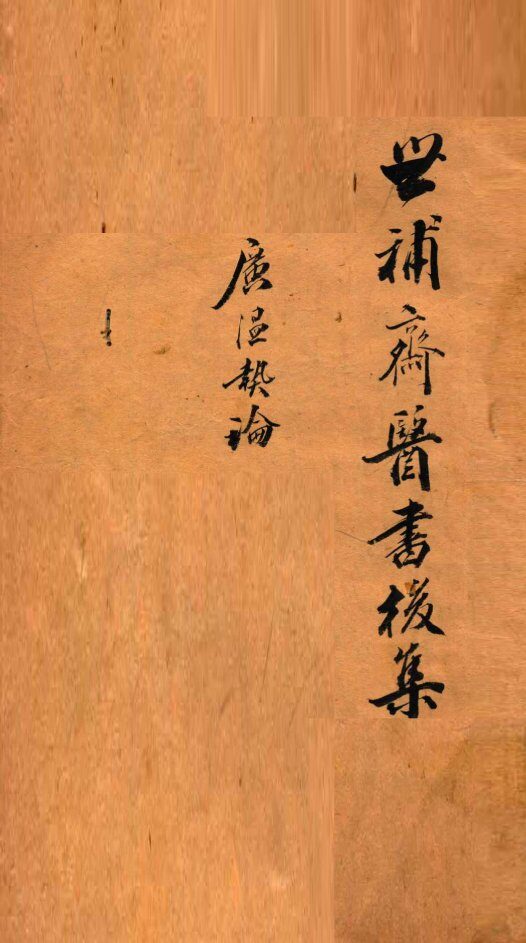 世補齋醫書後集
廣温熱論